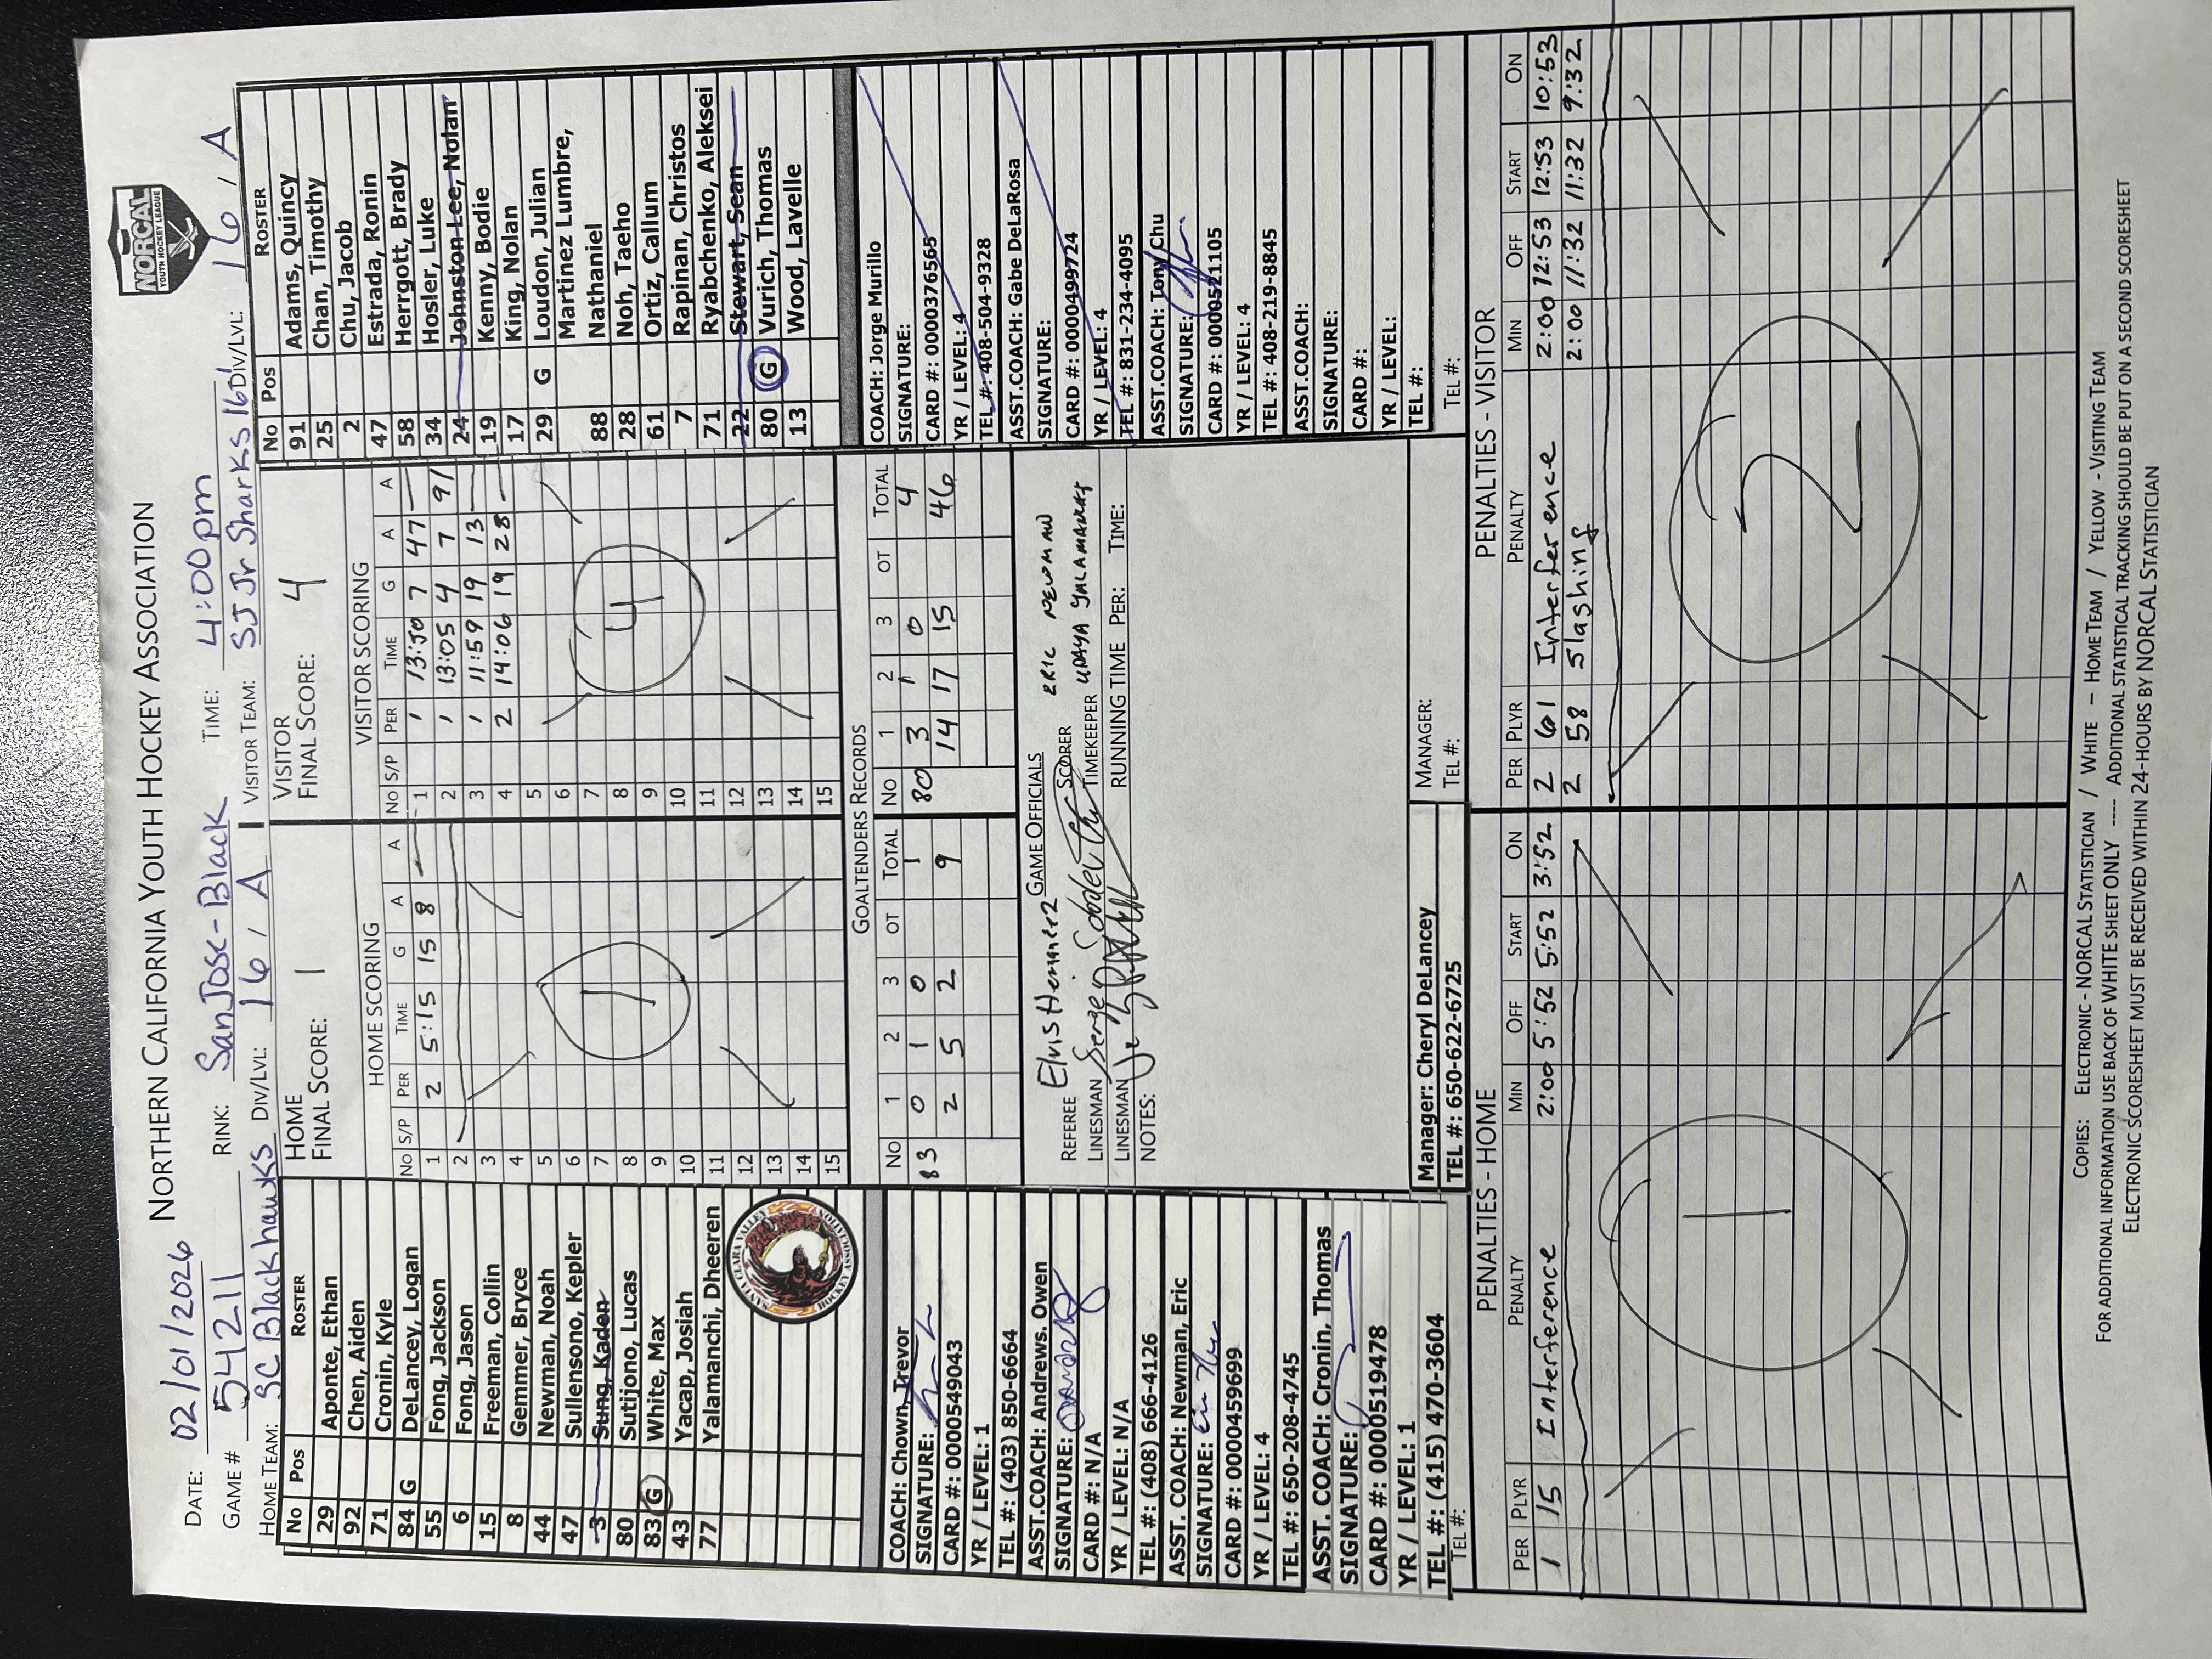 NORTHERN CALIFORNIA YOUTH HOCKEY ASSOCIATION
NORCAL
YOUTH HOCKEY LEAGUE
DATE: 02/01/2026 RINK: San Jose-Black TIME: 4:00pm
GAME # 54211
HOME TEAM: SC Blackhawks DIV/LVL: 16/A VISITOR TEAM: SJ Jr Sharks 16 DIV/LVL: 16/A
No Pos ROSTER
29 Aponte, Ethan
92 Chen, Aiden
71 Cronin, Kyle
84 G DeLancey, Logan
55 Fong, Jackson
6 Fong, Jason
15 Freeman, Collin
8 Gemmer, Bryce
44 Newman, Noah
47 Sullensono, Kepler
3 Sung, Kaden
80 Sutijono, Lucas
83 G White, Max
43 Yacap, Josiah
77 Yalamanchi, Dheeren
SANTA CLARA VALLEY
BLACKHAWKS
HOCKEY ASSOCIATION
HOME
FINAL SCORE: 1
HOME SCORING
NO S/P PER TIME G A A
1 2 5:15 15 8 —
2
3
4
5
6
7
8
9
10
11
12
13
14
15
1
VISITOR
FINAL SCORE: 4
VISITOR SCORING
NO S/P PER TIME G A A
1 1 13:50 7 47 —
2 1 13:05 4 7 91
3 1 11:59 19 13 —
4 2 14:06 19 28 —
5
6
7
8
9
10
11
12
13
14
15
4
No Pos ROSTER
91 Adams, Quincy
25 Chan, Timothy
2 Chu, Jacob
47 Estrada, Ronin
58 Herrgott, Brady
34 Hosler, Luke
24 Johnston-Lee, Nolan
19 Kenny, Bodie
17 King, Nolan
29 G Loudon, Julian
Martinez Lumbre,
88 Nathaniel
28 Noh, Taeho
61 Ortiz, Callum
7 Rapinan, Christos
71 Ryabchenko, Aleksei
22 Stewart, Sean
80 G Vurich, Thomas
13 Wood, Lavelle
COACH: Chown, Trevor
SIGNATURE:
CARD #: 0000549043
YR / LEVEL: 1
TEL #: (403) 850-6664
ASST.COACH: Andrews. Owen
SIGNATURE:
CARD #: N/A
YR / LEVEL: N/A
TEL #: (408) 666-4126
ASST. COACH: Newman, Eric
SIGNATURE:
CARD #: 0000459699
YR / LEVEL: 4
TEL #: 650-208-4745
ASST. COACH: Cronin, Thomas
SIGNATURE:
CARD #: 0000519478
YR / LEVEL: 1
TEL #: (415) 470-3604
TEL #:
GOALTENDERS RECORDS
NO 1 2 3 OT TOTAL NO 1 2 3 OT TOTAL
83 0 1 0 1 80 3 1 0 4
2 5 2 9 14 17 15 46
GAME OFFICIALS
REFEREE SCORER ERIC NEWMAN
LINESMAN TIMEKEEPER
LINESMAN RUNNING TIME PER: TIME:
NOTES:
Manager: Cheryl DeLancey
TEL #: 650-622-6725
MANAGER:
TEL #:
COACH: Jorge Murillo
SIGNATURE:
CARD #: 0000376565
YR / LEVEL: 4
TEL #: 408-504-9328
ASST.COACH: Gabe DeLaRosa
SIGNATURE:
CARD #: 0000499724
YR / LEVEL: 4
TEL #: 831-234-4095
ASST.COACH: Tony Chu
SIGNATURE:
CARD #: 0000521105
YR / LEVEL: 4
TEL #: 408-219-8845
ASST.COACH:
SIGNATURE:
CARD #:
YR / LEVEL:
TEL #:
TEL #:
PENALTIES - HOME
PER PLYR PENALTY MIN OFF START ON
1 15 Interference 2:00 5:52 5:52 3:52
1
PENALTIES - VISITOR
PER PLYR PENALTY MIN OFF START ON
2 61 Interference 2:00 12:53 12:53 10:53
2 58 Slashing 2:00 11:32 11:32 9:32
2
COPIES: ELECTRONIC - NORCAL STATISTICIAN / WHITE – HOME TEAM / YELLOW - VISITING TEAM
FOR ADDITIONAL INFORMATION USE BACK OF WHITE SHEET ONLY ---- ADDITIONAL STATISTICAL TRACKING SHOULD BE PUT ON A SECOND SCORESHEET
ELECTRONIC SCORESHEET MUST BE RECEIVED WITHIN 24-HOURS BY NORCAL STATISTICIAN